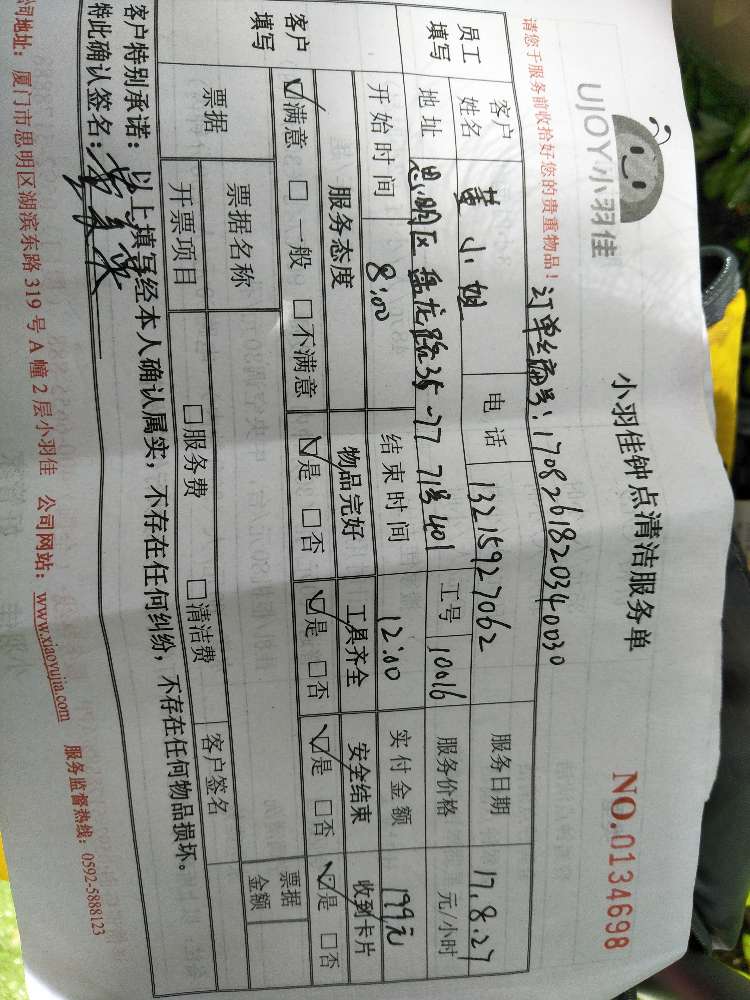 UJOY小羽佳
小羽佳钟点清洁服务单
NO.0134698
请您于服务前收拾好您的贵重物品！
订单编号:1708261820340030
员工填写
客户姓名 董小姐 电话 13215927062 服务日期 17.8.27
地址 思明区盘龙路35-77 71号401 工号 10016 服务价格 元/小时
开始时间 8:00 结束时间 12:00 实付金额 199元
客户填写
服务态度 物品完好 工具齐全 安全结束 收到卡片
☑满意 □一般 □不满意 ☑是 □否 ☑是 □否 ☑是 □否 ☑是 □否
票据 票据名称 客户签名 票据金额
开票项目 □服务费 □清洁费
客户特别承诺：以上填写经本人确认属实，不存在任何纠纷，不存在任何物品损坏。
特此确认签名：
公司地址：厦门市思明区湖滨东路319号A幢2层小羽佳 公司网站：www.xiaoyujia.com 服务监督热线：0592-5888123